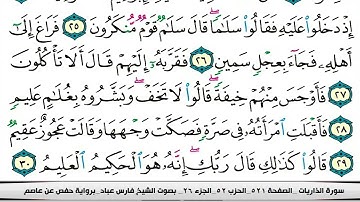 إِذْ دَخَلُوا۟ عَلَيْهِ فَقَالُوا۟ سَلَٰمًا ۖ قَالَ سَلَٰمٌ قَوْمٌ مُّنكَرُونَ ٢٥ فَرَاغَ إِلَىٰٓ
أَهْلِهِۦ فَجَآءَ بِعِجْلٍ سَمِينٍ ٢٦ فَقَرَّبَهُۥٓ إِلَيْهِمْ قَالَ أَلَا تَأْكُلُونَ
٢٧ فَأَوْجَسَ مِنْهُمْ خِيفَةً ۖ قَالُوا۟ لَا تَخَفْ ۖ وَبَشَّرُوهُ بِغُلَٰمٍ عَلِيمٍ
٢٨ فَأَقْبَلَتِ ٱمْرَأَتُهُۥ فِى صَرَّةٍ فَصَكَّتْ وَجْهَهَا وَقَالَتْ عَجُوزٌ عَقِيمٌ
٢٩ قَالُوا۟ كَذَٰلِكِ قَالَ رَبُّكِ ۖ إِنَّهُۥ هُوَ ٱلْحَكِيمُ ٱلْعَلِيمُ ٣٠
سورة الذاريات _ الصفحة ٥٢١ _ الحزب ٥٢ _ الجزء ٢٦ _ بصوت الشيخ فارس عباد _ برواية حفص عن عاصم